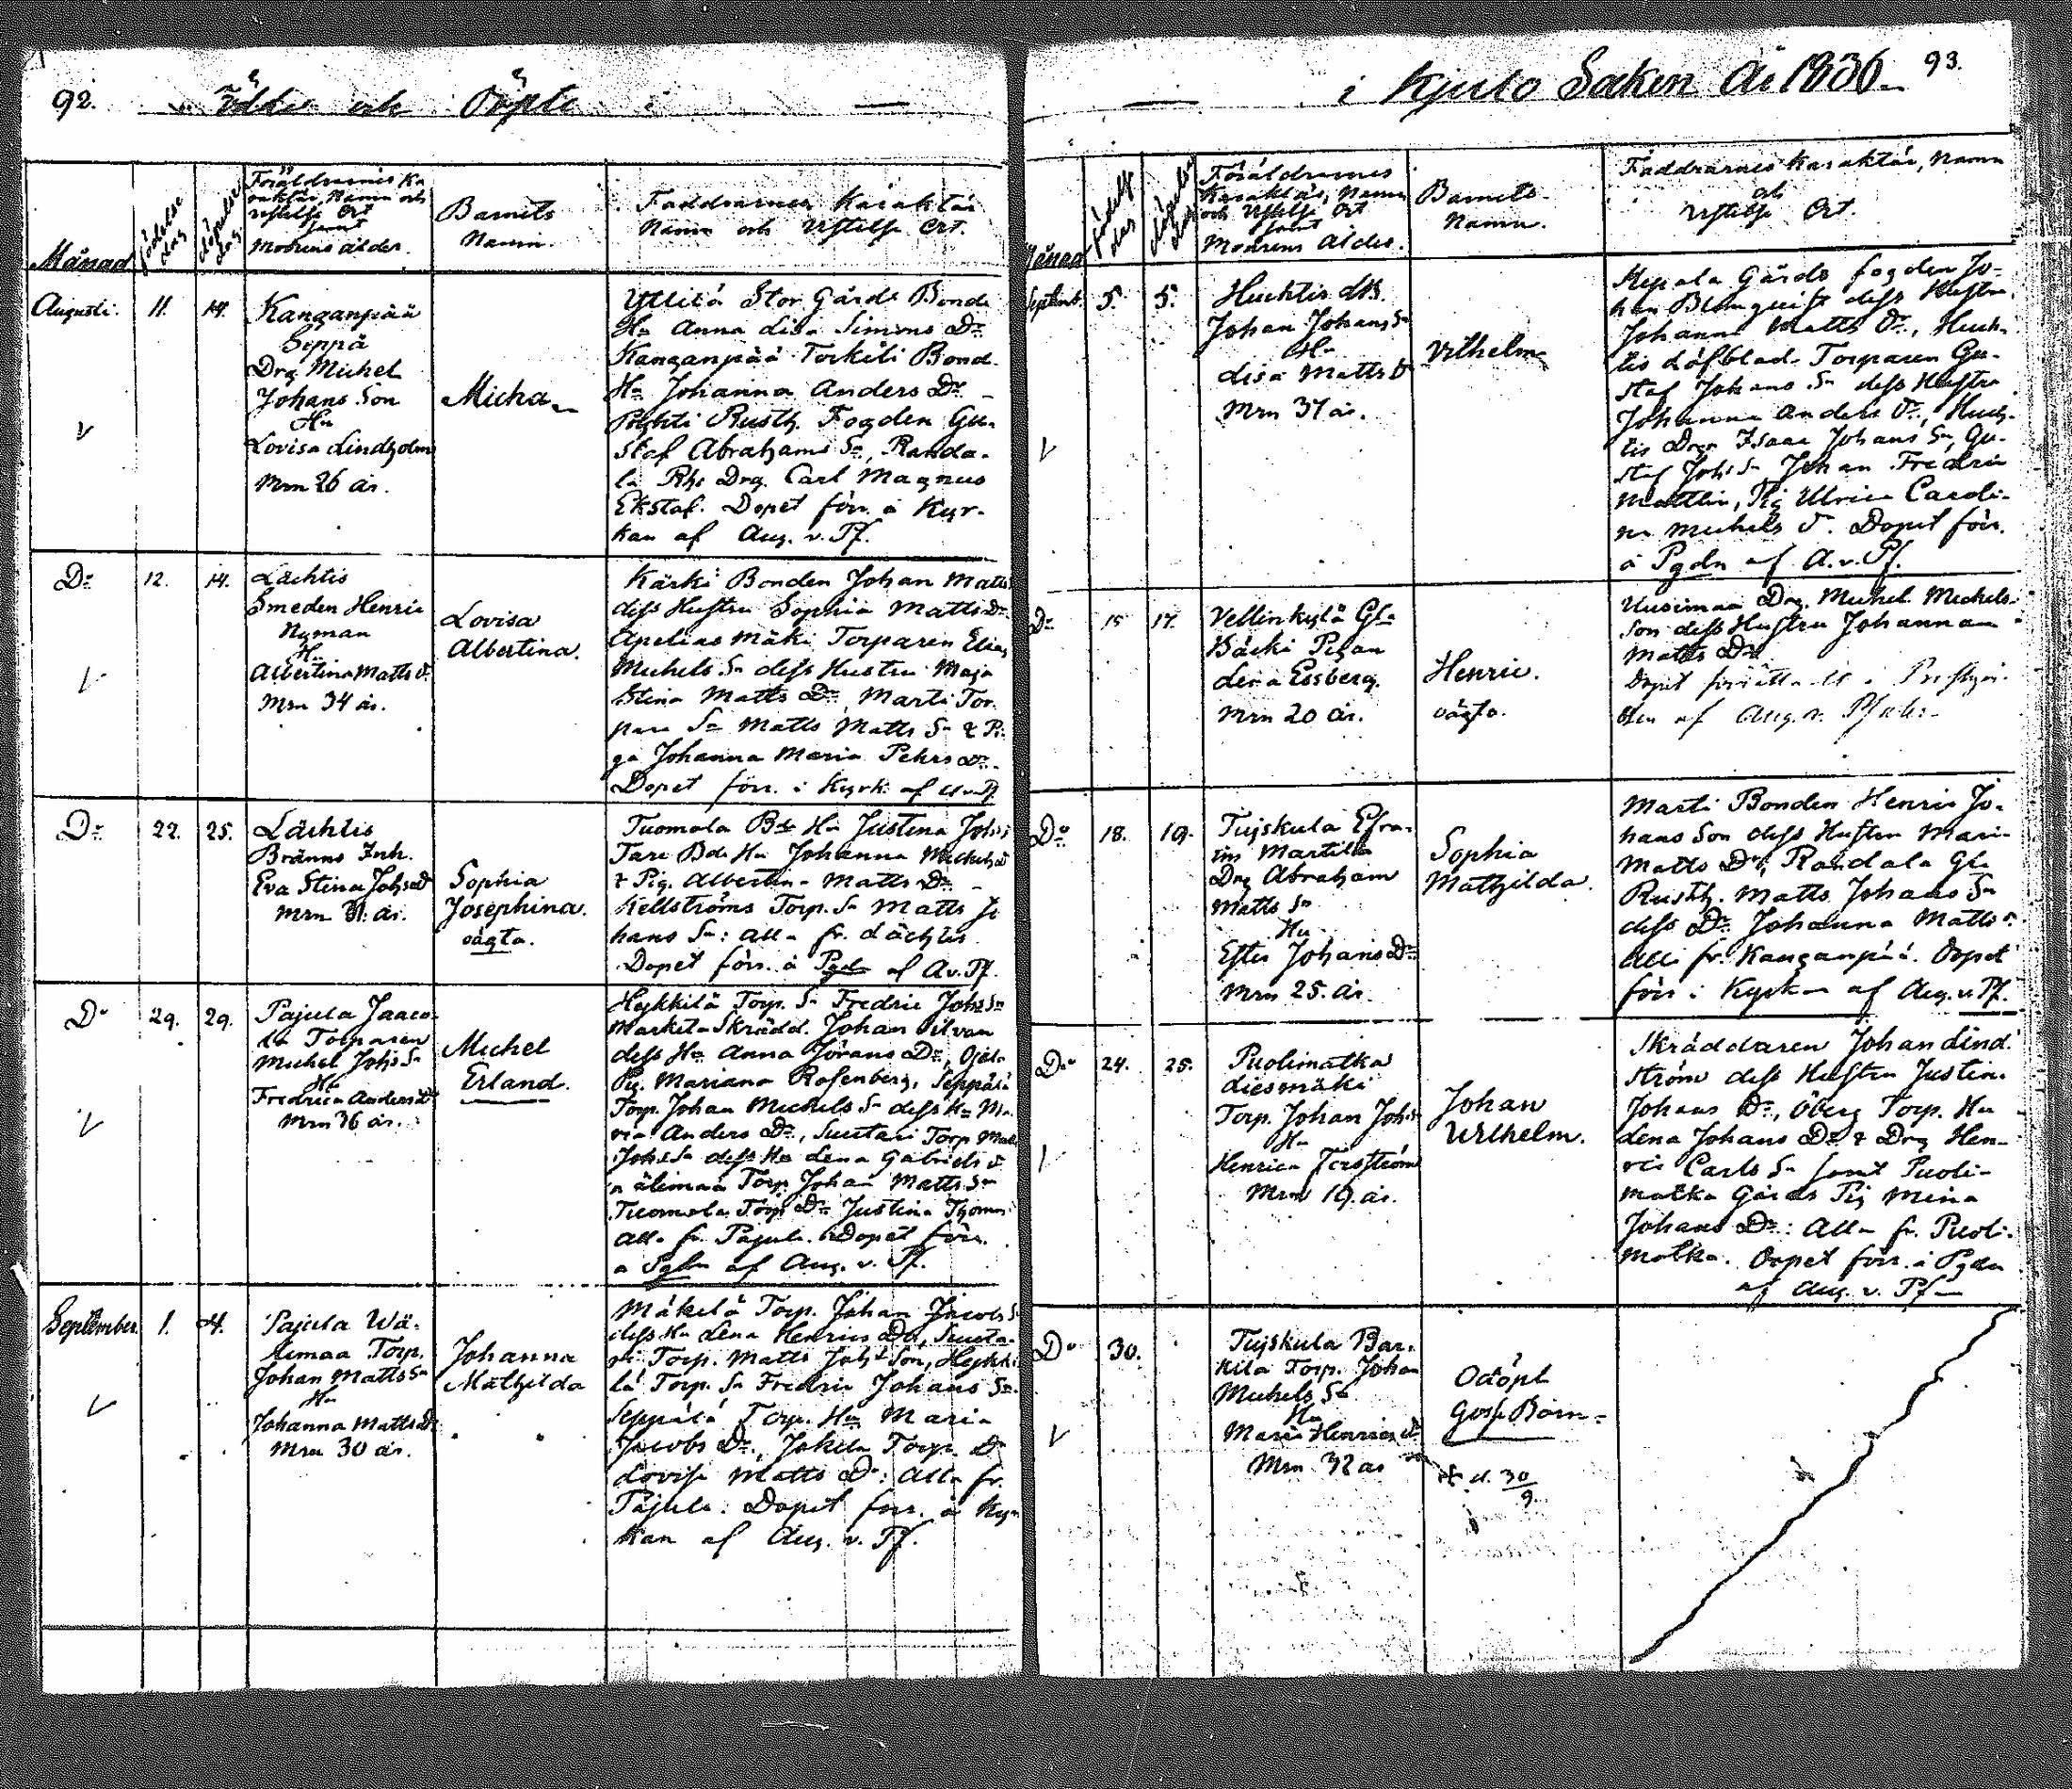 92.
och Döpte
Månad
födelse
dag
döpelse
dag
Föräldrarnes Ka
raktär, Namn och
Vistelse Ort
samt
Modrens ålder.
Barnets
Namn.
Faddrarnes Karaktär
Namn och Vistelse Ort.
Augusti.
11.
14.
Kanganpää
Seppä
Drg Michel
Johans Son
Hu
Lovisa Lindholm
Mrn 26 år.
Micha
Yllilä Stor Gårds Bonde
Hu Anna Lisa Simons Dr
Kanganpää Torkili Bond.
Hu Johanna Anders Dr
Pohti Rusth. Fogden Gu-
staf Abrahams Sn, Randa-
la Rhs Drg. Carl Magnus
Ekstaf. Dopet förr. å Kyr-
kan af Aug. v. Pf.
Do
12.
14.
Lächtis
Smeden Henric
Nyman
Hu
Albertina Matts d.
Mrn 34 år.
Lovisa
Albertina.
Kärki Bonden Johan Matts
dess Hustru Sophia Matts Dr
mäki Torparen Elias
Michels Sn dess Hustru Maja
Stina Matts Dr, Marti Tor
pare Sn Matts Matts Sn & Pi-
ga Johanna Maria Pehrs Dr.
Dopet förr. i Kyrk. af
Do
22.
25.
Lächtis
Bränns Inh.
Eva Stina Johs d
Mrn 31. år.
Sophia
Josephina.
oägta.
Tuomola Bde Hu Justina Johs
Tare Bde Hu Johanna Michels d
& Pig. Albertina Matts Dr.
Kellströms Torp. Sn Matts Jo
hans Sn: alla fr. Lächtis.
Dopet förr. å Pgdn af A.v.Pf.
Do
29.
29.
Pajula Jaaco-
la Torparen
Michel Johs Sn
Hu
Fredrica Anders d
Mrn 36 år.
Michel
Erland.
Heikkilä Torp. Sn Fredric Johs Sn
Skrädd. Johan
dess Hu Anna Jörans Dr,
Pig. Mariana Rosenberg, Seppälä
Torp. Johan Michels Sn dess Hu Ma-
ria Anders Dr, Suutari Torp Matts
Johs Sn dess Hu Lena Gabriels d
Torp Johan Matts Sn
Tuomola Torp Dr Justina
alla fr Pajula. Dopet förr.
a Pgdn af Aug. v. Pf.
September
1.
4.
Pajula Wä-
limaa Torp.
Johan Matts Sn
Hu
Johanna Matts Dr
Mrn 30 år.
Johanna
Mathilda
Mäkelä Torp. Johan Jacobs S
dess Hu Lena Henrics Dr, Suuta-
ri Torp. Matts Johs Son, Heikki-
lä Torp. Sn Fredric Johans Sn.
Seppälä Torp. Hu Maria
Jacobs Dr, Jokela Torp. Dr
Lovisa Matts Dr: alla fr.
Pajula. Dopet förr. å Kyr
kan af Aug. v. Pf.
93.
i Kjulo Socken År 1836
Månad
födelse
dag
döpelse
dag
Föräldrarnes
Karaktär, Namn
och Vistelse Ort
samt
Modrens Ålder.
Barnets
Namn.
Faddrarnes Karaktär, Namn
och
Vistelse Ort.
Septemb.
5.
5.
Huchtis
Johan Johans Sn
Hu
Lisa Matts d
Mrn 37 år.
Vilhelm
Gårds fogden Jo-
han Blomquist dess Hustru
Johanna Matts Dr, Huch-
tis Löfblad Torparen Gu-
staf Johans Sn dess Hustru
Johanna Anders Dr, Huch-
tis Drg Isaac Johans Sn, Gu-
staf Johs Sn Johan Fredric
Mattlin, Pig Ulrica Caroli-
na Michels d. Dopet förr.
å Pgdn af A.v.Pf.
Do
15
17.
Vellinkylä Gln
Bäcki Pigan
Lena Essberg.
Mrn 20 år.
Henric.
oägta.
Uusimaa Drg. Michel Michels-
son dess Hustru Johanna
Matts Dr
Dopet förrättadt i Prestgår-
den af Aug. v. Pf
Do
18.
19.
Tujskula Efra-
im Martila
Drg Abraham
Matts Sn
Hu
Ester Johans Dr
Mrn 25. år.
Sophia
Mathilda.
Marti Bonden Henric Jo-
hans Son dess Hustru Maria
Matts Dr, Randala Gln
Rusth. Matts Johans Sn
dess Dr Johanna Matts d.
alla fr. Kanganpää. Dopet
förr i Kyrkan af Aug. v. Pf.
Do
24.
25.
Puolimatka
Liesmäki
Torp. Johan Johs Sn
Hu
Henrica Forsström
Mrn 19. år.
Johan
Wilhelm.
Skräddaren Johan Lind-
ström dess Hustru Justina
Johans Dr, Öberg Torp. Hu
Lena Johans Dr & Drg Hen-
ric Carls Sn samt Puoli-
matka Gårds Pig Mina
Johans Dr: Alla fr. Puoli-
matka. Dopet förr. å Pgdn
af Aug. v. Pf
Do
30.
Tujskula Bar-
kila Torp. Johan
Michels Sn
Hu
Maria Henrics d.
Mrn 32 år
Odöpt
Goss Barn
d. 30/9.